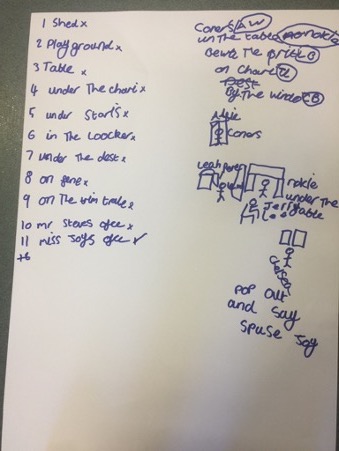 1 Shed x
2 Playground x
3 Table x
4 under The chari x
5 under Stairs x
6 in The Loocker x
7 under The dest x
8 on fene x
9 on The trim trale x
10 mr Steves ofce x
11 miss Joys ofce ✓
+6
Coners AW
unthe table
on Chari
By The window CB
Coners
Leah
nokie
under the
table
pop out
and Say
Spuse Joy